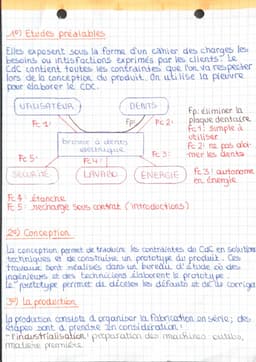 1°) Etudes préalables
Elles exposent sous la forme d'un cahier des charges les
besoins ou intisfactions exprimés par les clients. Le
CdC contient toutes les contraintes que l'on va respecter
lors de la conception du produit. On utilise la pieuvre
pour élaborer le CDC.
UTILISATEUR
DENTS
Fc 1:
Fp:
Fc 2:
brosse à dents
électrique
Fc 5:
Fc 4:
Fc 3:
SÉCURITÉ
LAVABO
ÉNERGIE
Fp: éliminer la
plaque dentaire
Fc 1: simple à
utiliser
Fc 2: ne pas abî-
mer les dents
Fc 3: autonome
en énergie
Fc 4: étanche
Fc 5: recharge sous contrat (introductions)
2°) Conception
La conception permet de traduire les contraintes du CdC en solutions
techniques et de construire un prototype du produit. Ces
travaux sont réalisés dans un bureau d'étude où des
ingénieurs et des techniciens élaborent le prototype.
Le prototype permet de déceler les défauts et de les corriger
3°) La production
La production consiste à organiser la fabrication en série; des
étapes sont à prendre en considération:
- l'industrialisation: préparation des machines, outils,
matière première